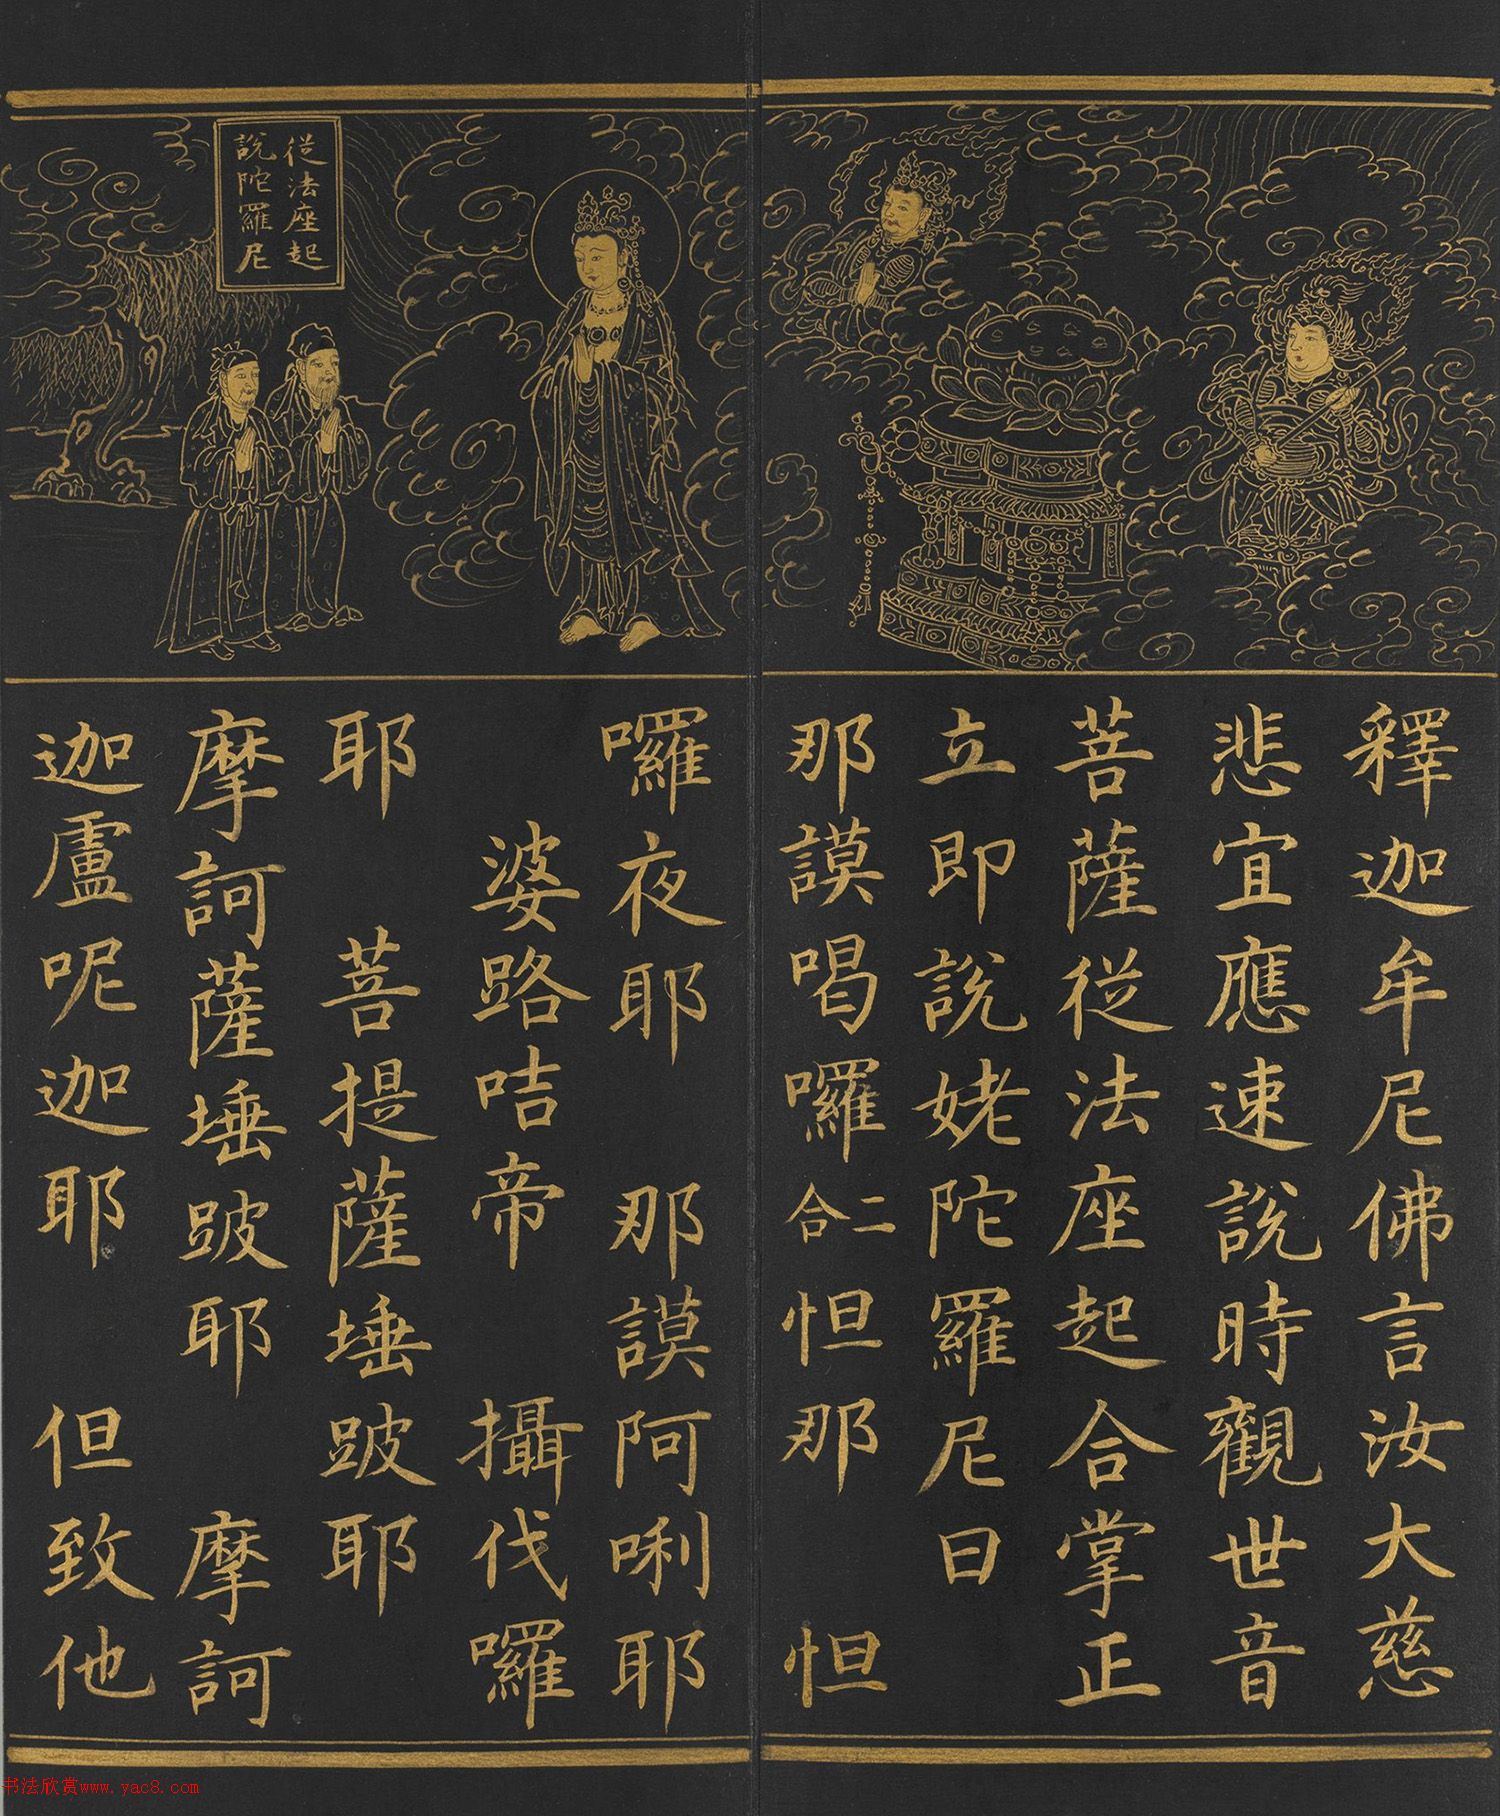 從法座起
說陀羅尼
釋迦牟尼佛言汝大慈
悲宜應速說時觀世音
菩薩從法座起合掌正
立即說姥陀羅尼曰
那謨喝囉二合怛那 怛
囉夜耶 那謨阿唎耶
婆路咭帝 攝伐囉
耶 菩提薩埵跛耶
摩訶薩埵跛耶 摩訶
迦盧呢迦耶 但致他
书法欣赏www.yac8.com